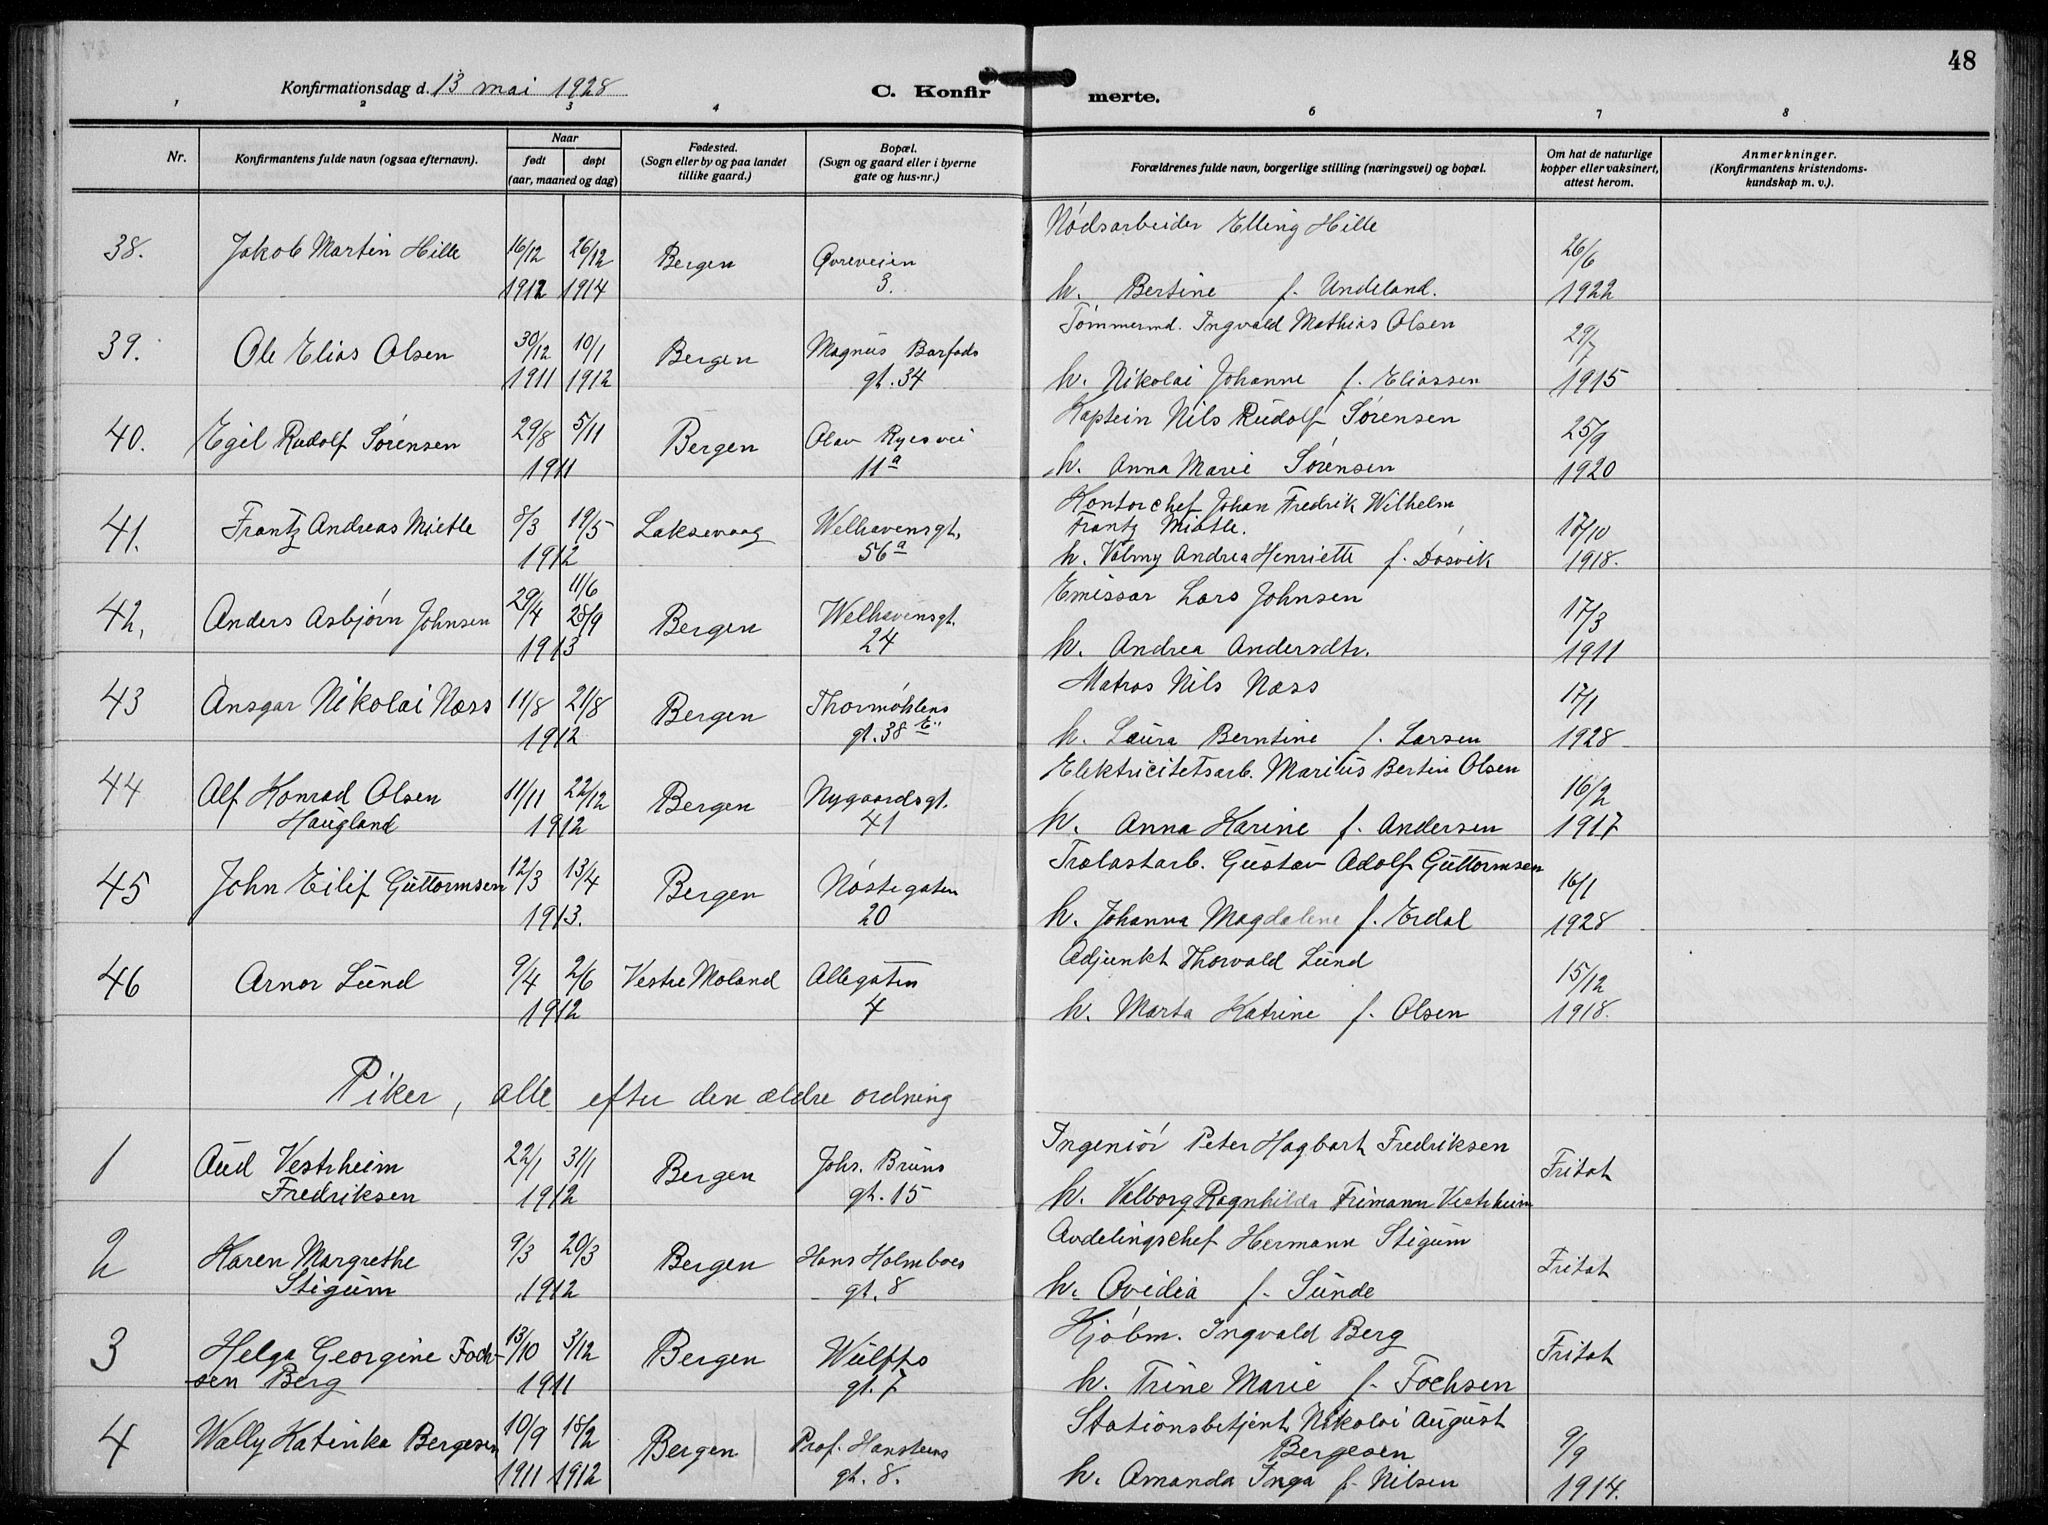 48
Konfirmationsdag d. 13 mai 1928
C. Konfirmerte.
1 2 3 4 6 7 8
Nr.
Konfirmantens fulde navn (ogsaa efternavn).
Naar
født
døpt
(aar, maaned og dag)
Fødested.
(Sogn eller by og paa landet
tillike gaard.)
Bopæl.
(Sogn og gaard eller i byerne
gate og hus-nr.)
Forældrenes fulde navn, borgerlige stilling (næringsvei) og bopæl.
Om hat de naturlige
kopper eller vaksinert,
attest herom.
Anmerkninger.
(Konfirmantens kristendoms-
kundskap m. v.).
38. Jakob Martin Hille 16/12 1912 26/12 1914 Bergen Øvreveien 3.
Nødsarbeider Elling Hille
h. Bertine f. Undeland. 26/6 1922
39. Ole Elias Olsen 30/12 1911 10/1 1912 Bergen Magnus Barfods gt. 34
Tømmermd. Ingvald Mathias Olsen
h. Nikolai Johanne f. Eliassen 29/7 1915
40. Egil Rudolf Sørensen 29/8 5/11 1911 Bergen Olav Ryesvei 11a
Kaptein Nils Rudolf Sørensen
h. Anna Marie Sørensen 25/9 1920
41. Frantz Andreas Mietle 8/3 19/5 1912 Laksevaag Welhavensgt. 56a
Kontorchef Johan Fredrik Wilhelm
Frantz Mietle.
h. Valmy Andrea Henriette f. Døsvik 17/10 1918.
42. Anders Asbjørn Johnsen 29/4 11/6 28/9 1913 Bergen Welhavensgt. 24
Emissær Lars Johnsen
h. Andrea Andersdtr. 17/3 1911
43 Ansgar Nikolai Næss 11/8 21/8 1912 Bergen Thormøhlens gt. 38 E
Matros Nils Næss
h. Laura Berntine f. Larsen 17/1 1928
44 Alf Konrad Olsen
Haugland 11/11 22/12 1912 Bergen Nygaardsgt. 41
Elektricitetsarb. Marius Bertin Olsen
h. Anna Karine f. Andersen 16/2 1917
45 John Eilif Guttormsen 12/3 13/4 1913. Bergen Nøstegaten 20
Trælastarb. Gustav Adolf Guttormsen
h. Johanna Magdalene f. Erdal 16/1 1928
46 Arnor Lund 9/4 2/6 1912 Vestre Moland Allegaten 4
Adjunkt Thorvald Lund
h. Marta Katrine f. Olsen 15/12 1918.
Piker, alle efter den ældre ordning
1 Aud Vestrheim
Fredriksen 22/1 31/1 1912 Bergen Johs. Bruns gt. 15
Ingeniør Peter Hagbart Fredriksen
h. Valborg Ragnhilda Frimann Vestrheim Fritat
2 Karen Margrethe
Stigum 9/3 20/3 1912 Bergen Hans Holmboes gt. 8
Avdelingschef Hermann Stigum
h. Ovidia f. Sunde Fritat
3 Helga Georgine Foch-
sen Berg 13/10 3/12 1911 Bergen Wulffs gt. 7
Kjøbm. Ingvald Berg
h. Trine Marie f. Fochsen Fritat
4 Wally Katinka Bergesen 10/9 1911 18/2 1912 Bergen Prof. Hansteens gt. 8.
Stationsbetjent Nikolai August
Bergesen
h. Amanda Inga f. Nilsen 9/9 1914.